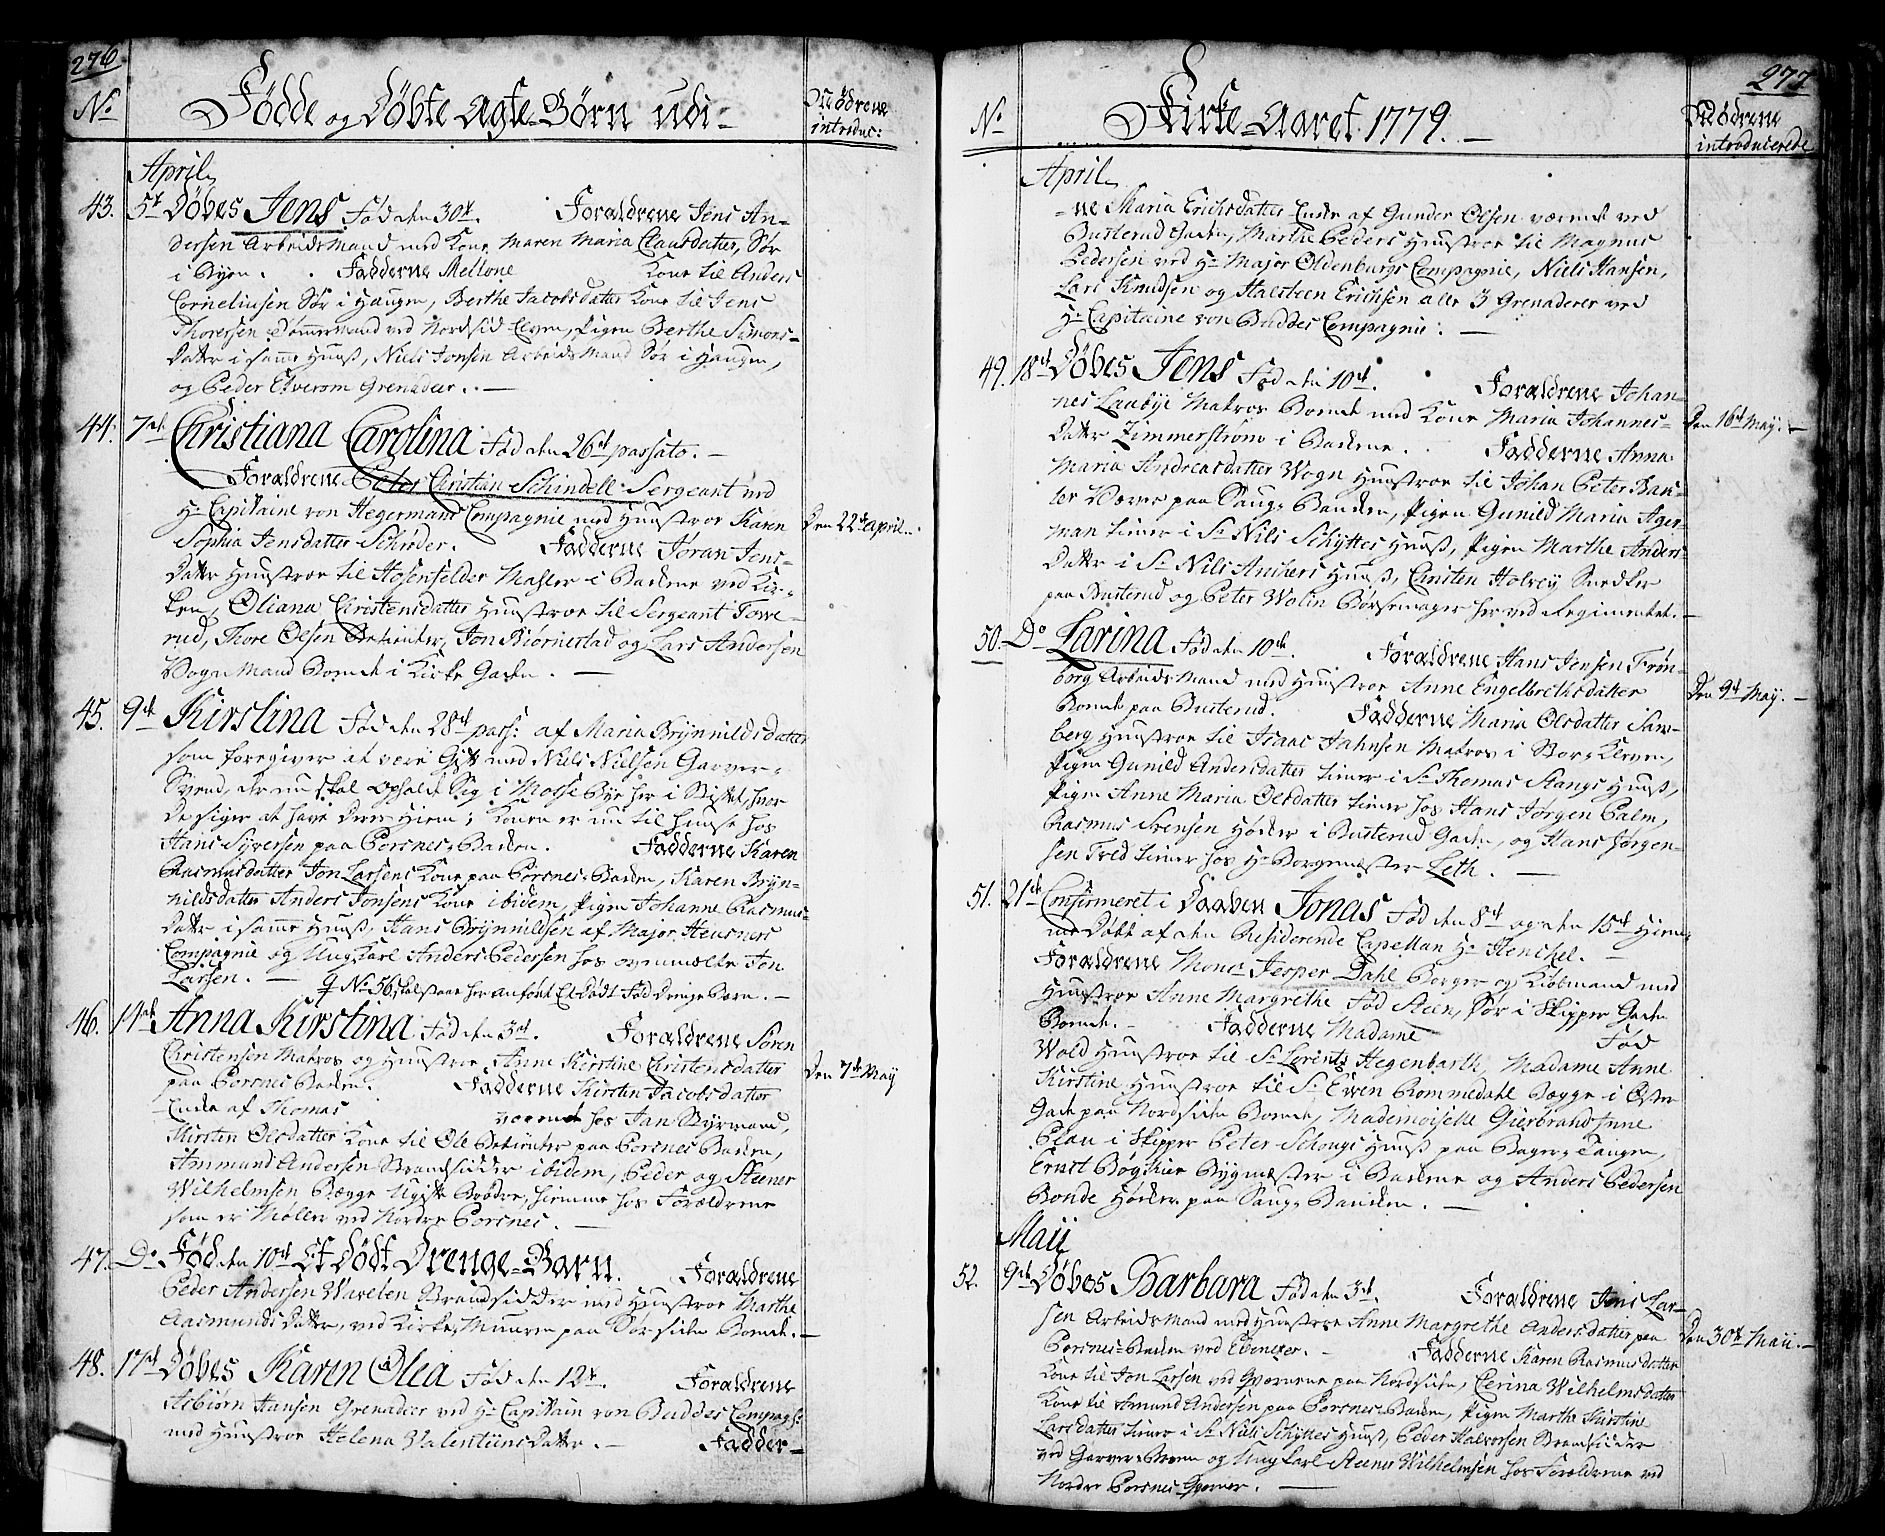 276
No
Fødde og Døbte Ægte-Børn udi-
Mødrene
introduc:
April
43. 5t Døbes Jens Fød den 30t. Forældrene Jens An-
dersen Arbeids Mand med Kone Maren Maria Clausdatter, Sør
i Byen. Fadderne Mellone Kone til Anders
Corneliusen Sør i Haugen, Berthe Jacobsdatter Kone til Jens
Thoresen Tømmermand ved Nordsid Elven, Pigen Berthe Simons-
datter i samme Huus, Niels Jonsen Arbeids Mand Sør i Haugen,
og Peder Elverom Grenadeer. -
44. 7de Christiana Carolina Fød den 26de passato. -
Forældrene Peter Christian Schindell Sergeant ved
Hr Capitaine von Hegermans Compagnie med Hustroe Karen
Den 22de April.
Sophia Jensdatter Schrøder. Fadderne Joran Jens-
datter Hustroe til Hosenfelder Mahler i Bakkene ved Kir-
ken, Oliana Christensdatter Hustroe til Sergeant Towe-
rud, Thore Olsen, Jon Biørnestad og Lars Andersen
Vogn Mand Boende i Kirke Gaden. -
45. 9de Kirstina Fød den 28de pass: af Maria Brynnildsdatter
som foregiver at være Gift med Niels Nielsen Garver-
Svend, der nu skal opholde Sig i Mosse Bye her i Stiftet, hvor
De siger at have Deres Hiem; Konen er nu til Huuse hos
Hans Syversen paa Porsnes Bakken. Fadderne Karen
Rasmusdatter Jon Larsens Kone paa Porsnes Bakken, Karen Bryn-
nildsdatter Anders Jonsens Kone ibidem, Pigen Johanne Rasmus-
datter i samme Huus, Hans Brynnildsen af Major Heusners
Compagnie og Ung Karl Anders Pedersen hos ovenmeldte Jon
Larsen. - No 56, skal staae her anført Et Dødt Fød Drenge Barn. -
46. 14de Anna Kirstina Fød den 3de. Forældrene Søren
Christensen Matros og Hustroe Anne Kirstine Christensdatter
Den 7de May
paa Porsnes Bakken. Fadderne Kirsten Jacobsdatter
Enke af Thomas værende hos Jan Styrmand,
Kirsten Olsdatter Kone til Ole paa Porsnes Bakken,
Ammund Andersen Strandsidder ibidem, Peder og Steener
Wilhelmsen Begge Ugifte Brødre, hiemme hos Forældrene
som er Møller ved Nordre Porsnes. -
47. Do Fød den 10de Et Dødt Drenge-Barn. Forældrene
Peder Andersen Wavelen Strandsidder med Hustroe Marthe
Aasmunds datter, ved Kirke Muuren paa Sør siden Boende. -
48. 17de Døbes Karen Olea Fød den 12t. Forældrene
Asbiørn Hansen Grenadeer ved Hr Capitain von Buddes Compagn:
med Hustroe Helena Valentiins datter. - Fadder-
277
No
Kirke-Aaret 1779. -
Mødrene
introducerede
April
-ne Maria Erichsdatter Enke af Gunder Olsen værende ved
Busterud Gaden, Marthe Peders Hustroe til Magnus
Pedersen ved Hr Major Oldenburgs Compagnie, Niels Hansen,
Lars Knudsen og Halsteen Erichsen alle 3 Grenaderer ved
Hr Capitaine von Buddes Compagnie. -
49. 18de Døbes Jens Fød den 10de. Forældrene Johan-
nes Laubye Matros Boende med Kone Maria Johannes-
Den 16de May. -
datter Zimmerstrøm i Bakkene. Fadderne Anna
Maria Andreasdatter Wogn Hustroe til Johan Peter Ban-
ler Væver paa Saug Banken, Pigen Gunild Maria Ager-
man tiener i Sr Nils Schyttes Huus, Pigen Marthe Anders
datter i Sr Nils Anchers Huus, Christen Holvey Snedker
paa Busterud og Peter Wolin Børsemager her ved Regimentet. -
50. Do Larina Fød den 10de. Forældrene Hans Jensen Frøn-
borg Arbeids Mand med Hustroe Anne Engelbrethsdatter
Den 9de May. -
Boende paa Busterud. Fadderne Maria Olsdatter Saw-
berg Hustroe til Isaac Jahnsen Matros i Stor Kleven,
Pigen Gunild Andersdatter tiener i Sr Thomas Stangs Huus,
Pigen Anne Maria Olsdatter tiener hos Hans Jørgen Palm,
Rasmus Svensen Høker i Busterud Gaden, og Hans Jørgen-
sen Fred tiener hos Hr Borgemester Leth. -
51. 21de Confirmeret i Daaben Jonas Fød den 8de og den 15de Hiem-
me Døbt af den Residerende Capellan Hr Henckel. -
Forældrene Monsr Jesper Dahl Borger og Kiøbmand med
Hustroe Anne Margrethe Fød Steen, Sør i Skipper Gaden
Boende. - Fadderne Madame Fød
Wold Hustroe til Sr Lorentz Hegenbarth, Madame Anne
Kirstine Hustroe til Sr Ewen Rommedahl Begge i Øster
Gade paa Nordsiden Boende, Mademoiselle Gierbrand Inne
Plau i Skipper Peter Schougs Huus paa Bager Tangen,
Ernst Bøgskier Bygmester i Bakkene og Anders Pedersen
Bonde Høker paa Saug Banken. -
Maii
52. 9de Døbes Barbara Fød den 3de. Forældrene Jens Lar-
sen Arbeids Mand med Hustroe Anne Margrethe Andersdatter paa
Den 30te Maii. -
Porsnes Bakken ved Ebenezer. - Fadderne Karen Rasmusdatter
Kone til Jon Larsen ved Qvernene paa Nordsiden, Cerina Wilhelmsdatter
Kone til Amund Andersen paa Porsnes Bakken, Pigen Marthe Kirstine
Larsdatter tiener i Sr Niels Schyttes Huus, Peder Halvorsen Strandsidder
ved Garver Broen og Ung Karl Steener Wilhelmsen hos Forældrene ved
Nordre Porsnes Qverner. -